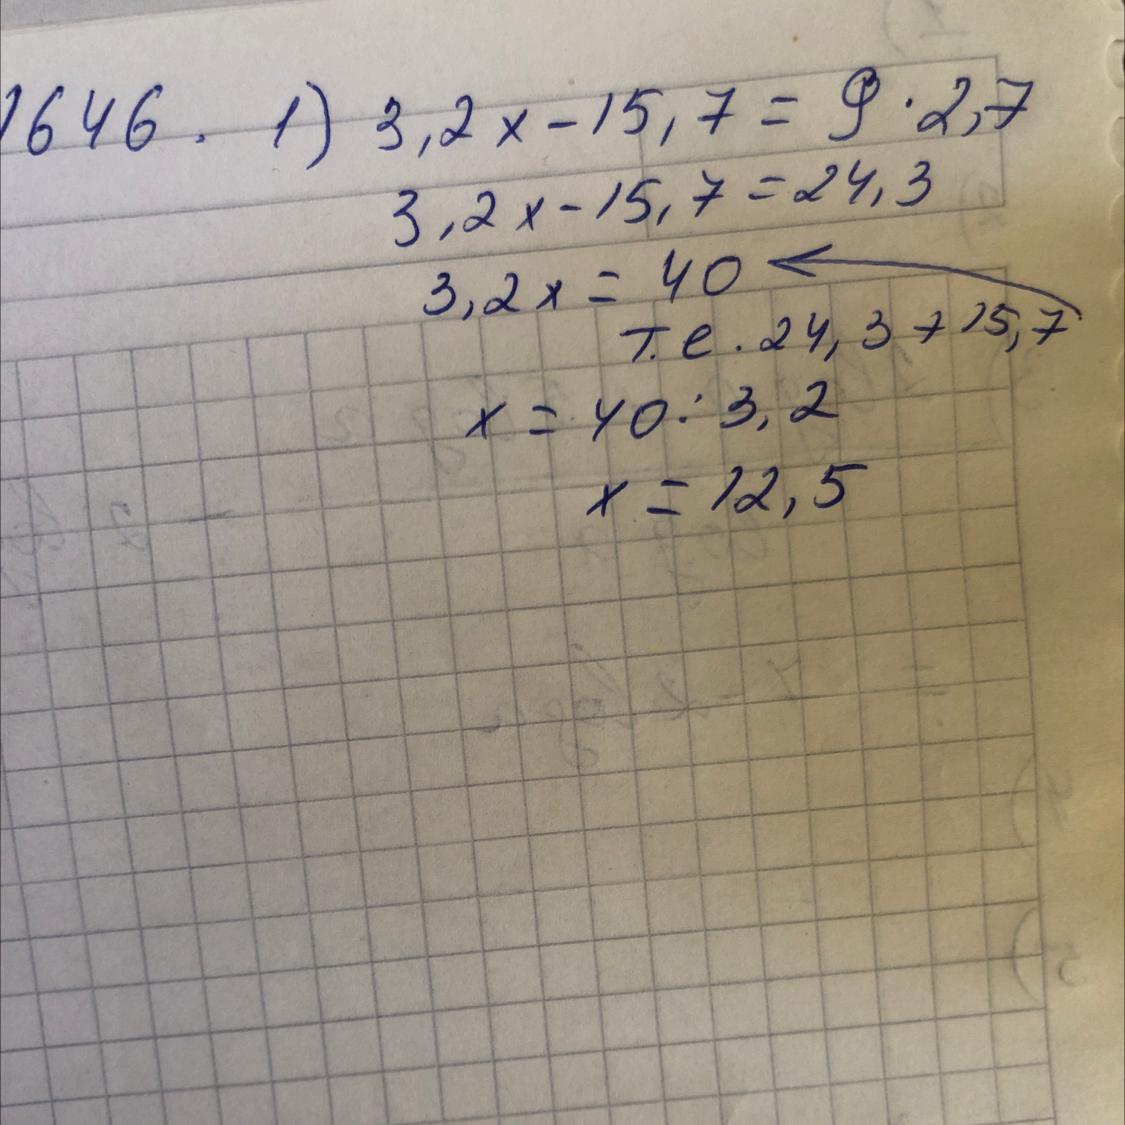 1646. 1) 3,2x-15,7=9·2,7
3,2x-15,7=24,3
3,2x=40
т.е. 24,3+15,7
x=40:3,2
x=12,5